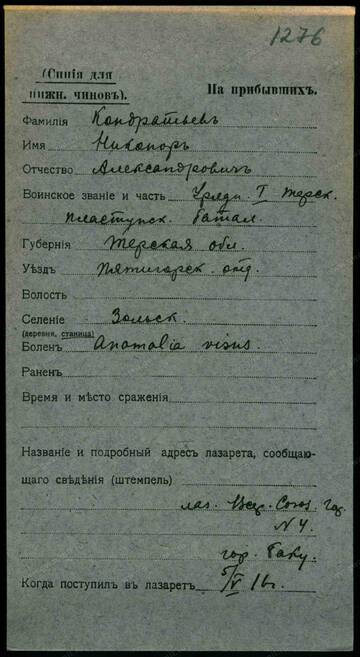 1276
(Синія для
нижн. чиновъ).
На прибывшихъ.
Фамилія Кондратьевъ
Имя Никаноръ
Отчество Александровичъ
Воинское званіе и часть Урядн. I Терск.
пластунск. батал.
Губернія Терская обл.
Уѣздъ Пятигорск. отд.
Волость
Селеніе Зольск.
(деревня, станица)
Боленъ Anomalia visus.
Раненъ
Время и мѣсто сраженія
Названіе и подробный адресъ лазарета, сообщаю-
щаго свѣдѣнія (штемпель)
лаз. Всер. Союз. Гор.
N 4.
гор. Баку.
Когда поступилъ въ лазаретъ 5/V 16 г.